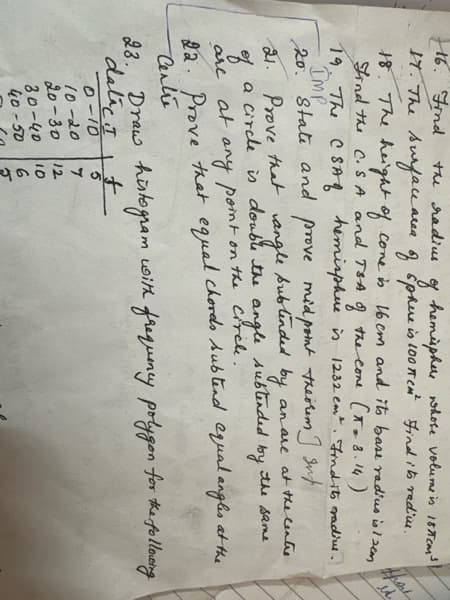 16. Find the radius of hemisphere whose volume is 18π cm³
17. The surface area of sphere is 100π cm² Find its radius.
18 The height of cone is 16cm and its base radius is 12cm
Find the C.S.A and TSA of the cone (π = 3.14)
19. The CSA of hemisphere is 1232 cm². Find its radius.
IMP
20. State and prove midpoint theorem] Imp
21. Prove that angle subtended by an arc at the centre
of a circle is double the angle subtended by the same
arc at any point on the circle.
22. Prove that equal chords subtend equal angles at the
Centre
23. Draw histogram with frequency polygon for the following
data
C I f
0-10 5
10-20 7
20-30 12
30-40 10
40-50 6